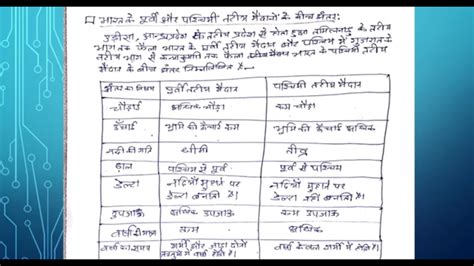 भारत के पूर्वी और पश्चिमी तटीय मैदानों के बीच अंतर:
उड़ीसा, आन्ध्रप्रदेश के तटीय प्रदेश से होता हुआ तमिलनाडु के तटीय
भाग तक फैला भारत के पूर्वी तटीय मैदान और पश्चिम में गुजरात के
तटीय भाग से कन्याकुमारी तक फैला भारत के पश्चिमी तटीय
मैदान के बीच अंतर निम्नलिखित है—
अंतर का विषय पूर्वी तटीय मैदान पश्चिमी तटीय मैदान
चौड़ाई अधिक चौड़ा कम चौड़ा
ऊँचाई भूमि की ऊँचाई कम भूमि की ऊँचाई अधिक
नदी की गति धीमी तीव्र
ढाल पश्चिम से पूर्व पूर्व से पश्चिम
डेल्टा नदियाँ मुहाने पर नदियाँ मुहाने पर
डेल्टा बनाती हैं। डेल्टा नहीं बनाती हैं।
उपजाऊ अधिक उपजाऊ कम उपजाऊ
वर्षा की मात्रा कम अधिक
वर्षा का समय गर्मी और जाड़ा दोनों वर्षा केवल गर्मी में होती है।
में वर्षा होती है।